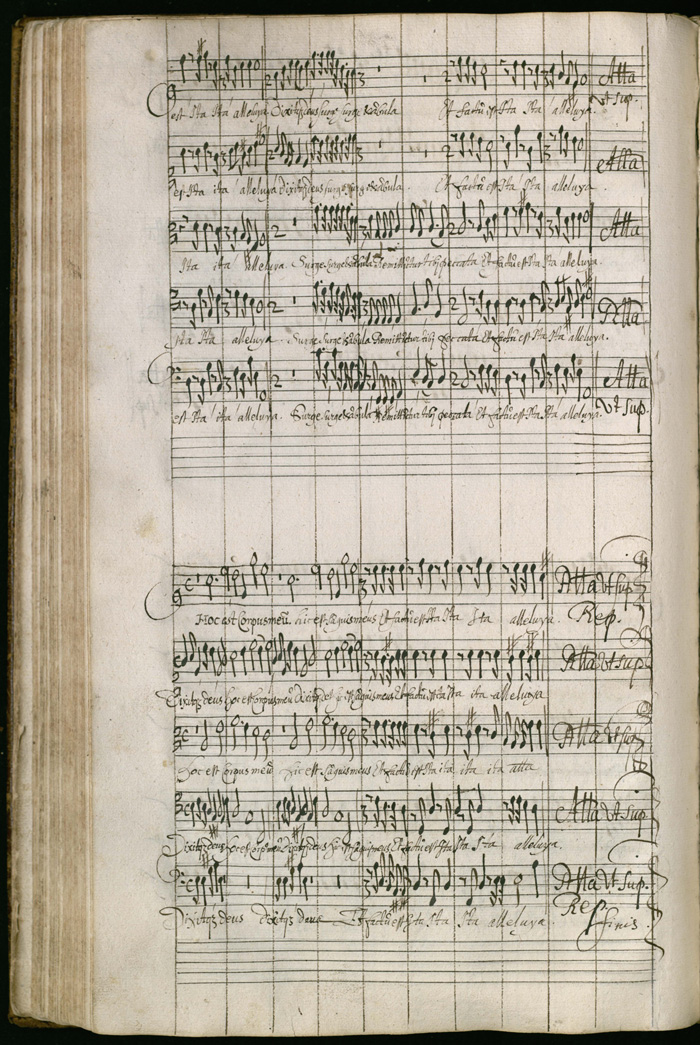 est Ita Ita alleluya Dixitqz deus surge surge et ābula Et factū est Ita Ita alleluya. Alla
Vt sup.
est ita ita alleluya Dixitqz deus surge surge et ābula. Et factū est Ita Ita alleluya Alla
Ita ita alleluya. Surge surge et ābula Remittūtur tibi peccata Et factū est Ita Ita alleluya. Alla
ita Ita alleluya. Surge surge et ābula Remittūtur tibi peccata Et factū est Ita Ita alleluya. Alla
est Ita ita alleluya. Surge surge et ābula Remittūtur tibi peccata Et factū est Ita Ita alleluya. Alla
Vt sup.
Hoc est Corpus meū. hic est sāguis meus Et factū est Ita Ita Ita alleluya. Alla Vt sup.
Rep.
Dixitqz deus hoc est Corpus meū Dixitqz de9 hic est sāguis meus Et factū est ita Ita ita alleluya Alla Vt sup
Hoc est Corpus meū hic est sāguis meus Et factū est Ita ita ita ita alla Alla Vt sup
Dixitqz deus hoc est corp9 meū Dixitqz deus Et factū est Ita Ita Ita alleluya. Alla Vt sup
Dixitqz deus dixitqz deus Et factū est Ita Ita Ita alleluya Alla Vt sup.
Rep
finis